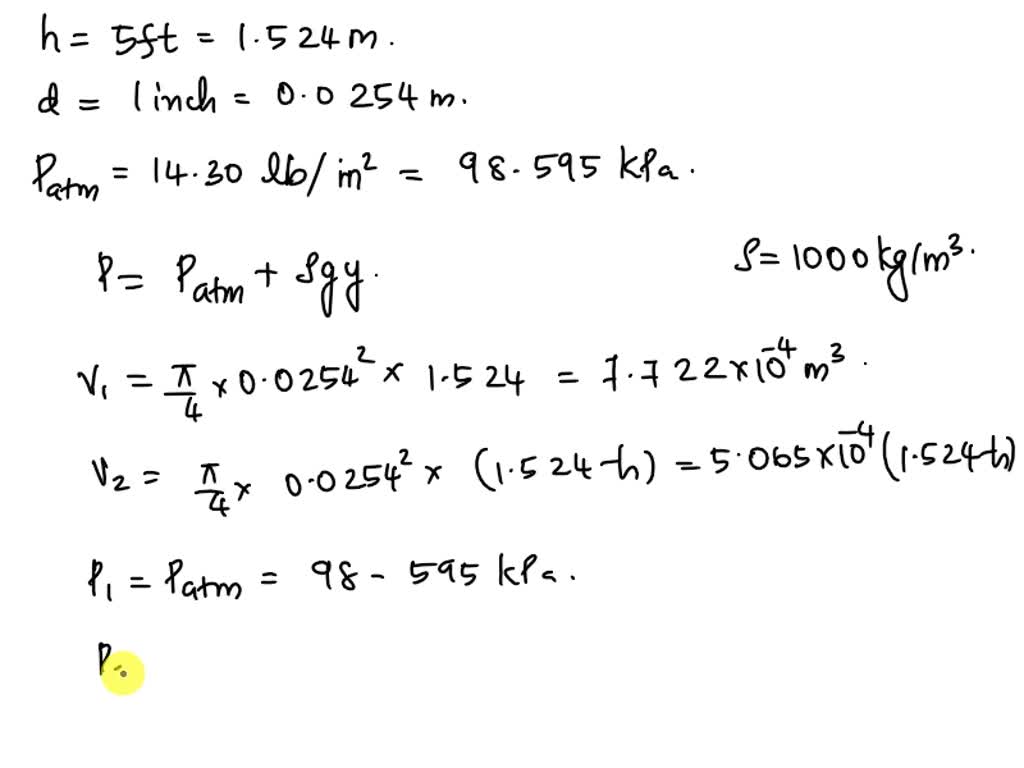 h = 5ft = 1.524 m.
d = 1 inch = 0.0254 m.
Patm = 14.30 lb/in² = 98.595 kPa.
P = Patm + ρgy. ρ = 1000 kg/m³.
V₁ = π/4 × 0.0254² × 1.524 = 7.722 × 10⁻⁴ m³.
V₂ = π/4 × 0.0254² × (1.524-h) = 5.065 × 10⁻⁴ (1.524-h)
P₁ = Patm = 98-595 kPa.
P